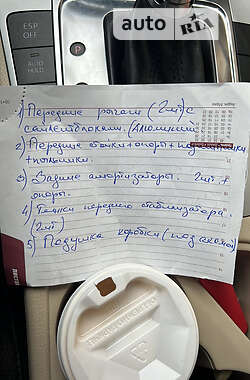 auto RIA
ESP OFF
AUTO HOLD
1) Передние рычаги (2шт) с
сайлентблоками. (Алюминий
2) Передние стойки + опоры +
+ пыльники.
3) Задние амортизаторы. 2шт +
опоры.
4) Тяжки переднего стабилизатора.
(2шт)
5) Подушка коробки (под